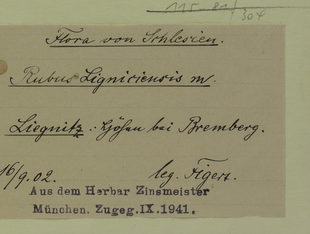 Flora von Schlesien.
Rubus Ligniciensis m.
Liegnitz: Höhen bei Bremberg.
16/9. 02. leg. Figert.
Aus dem Herbar Zinsmeister
München. Zugeg. IX. 1941.